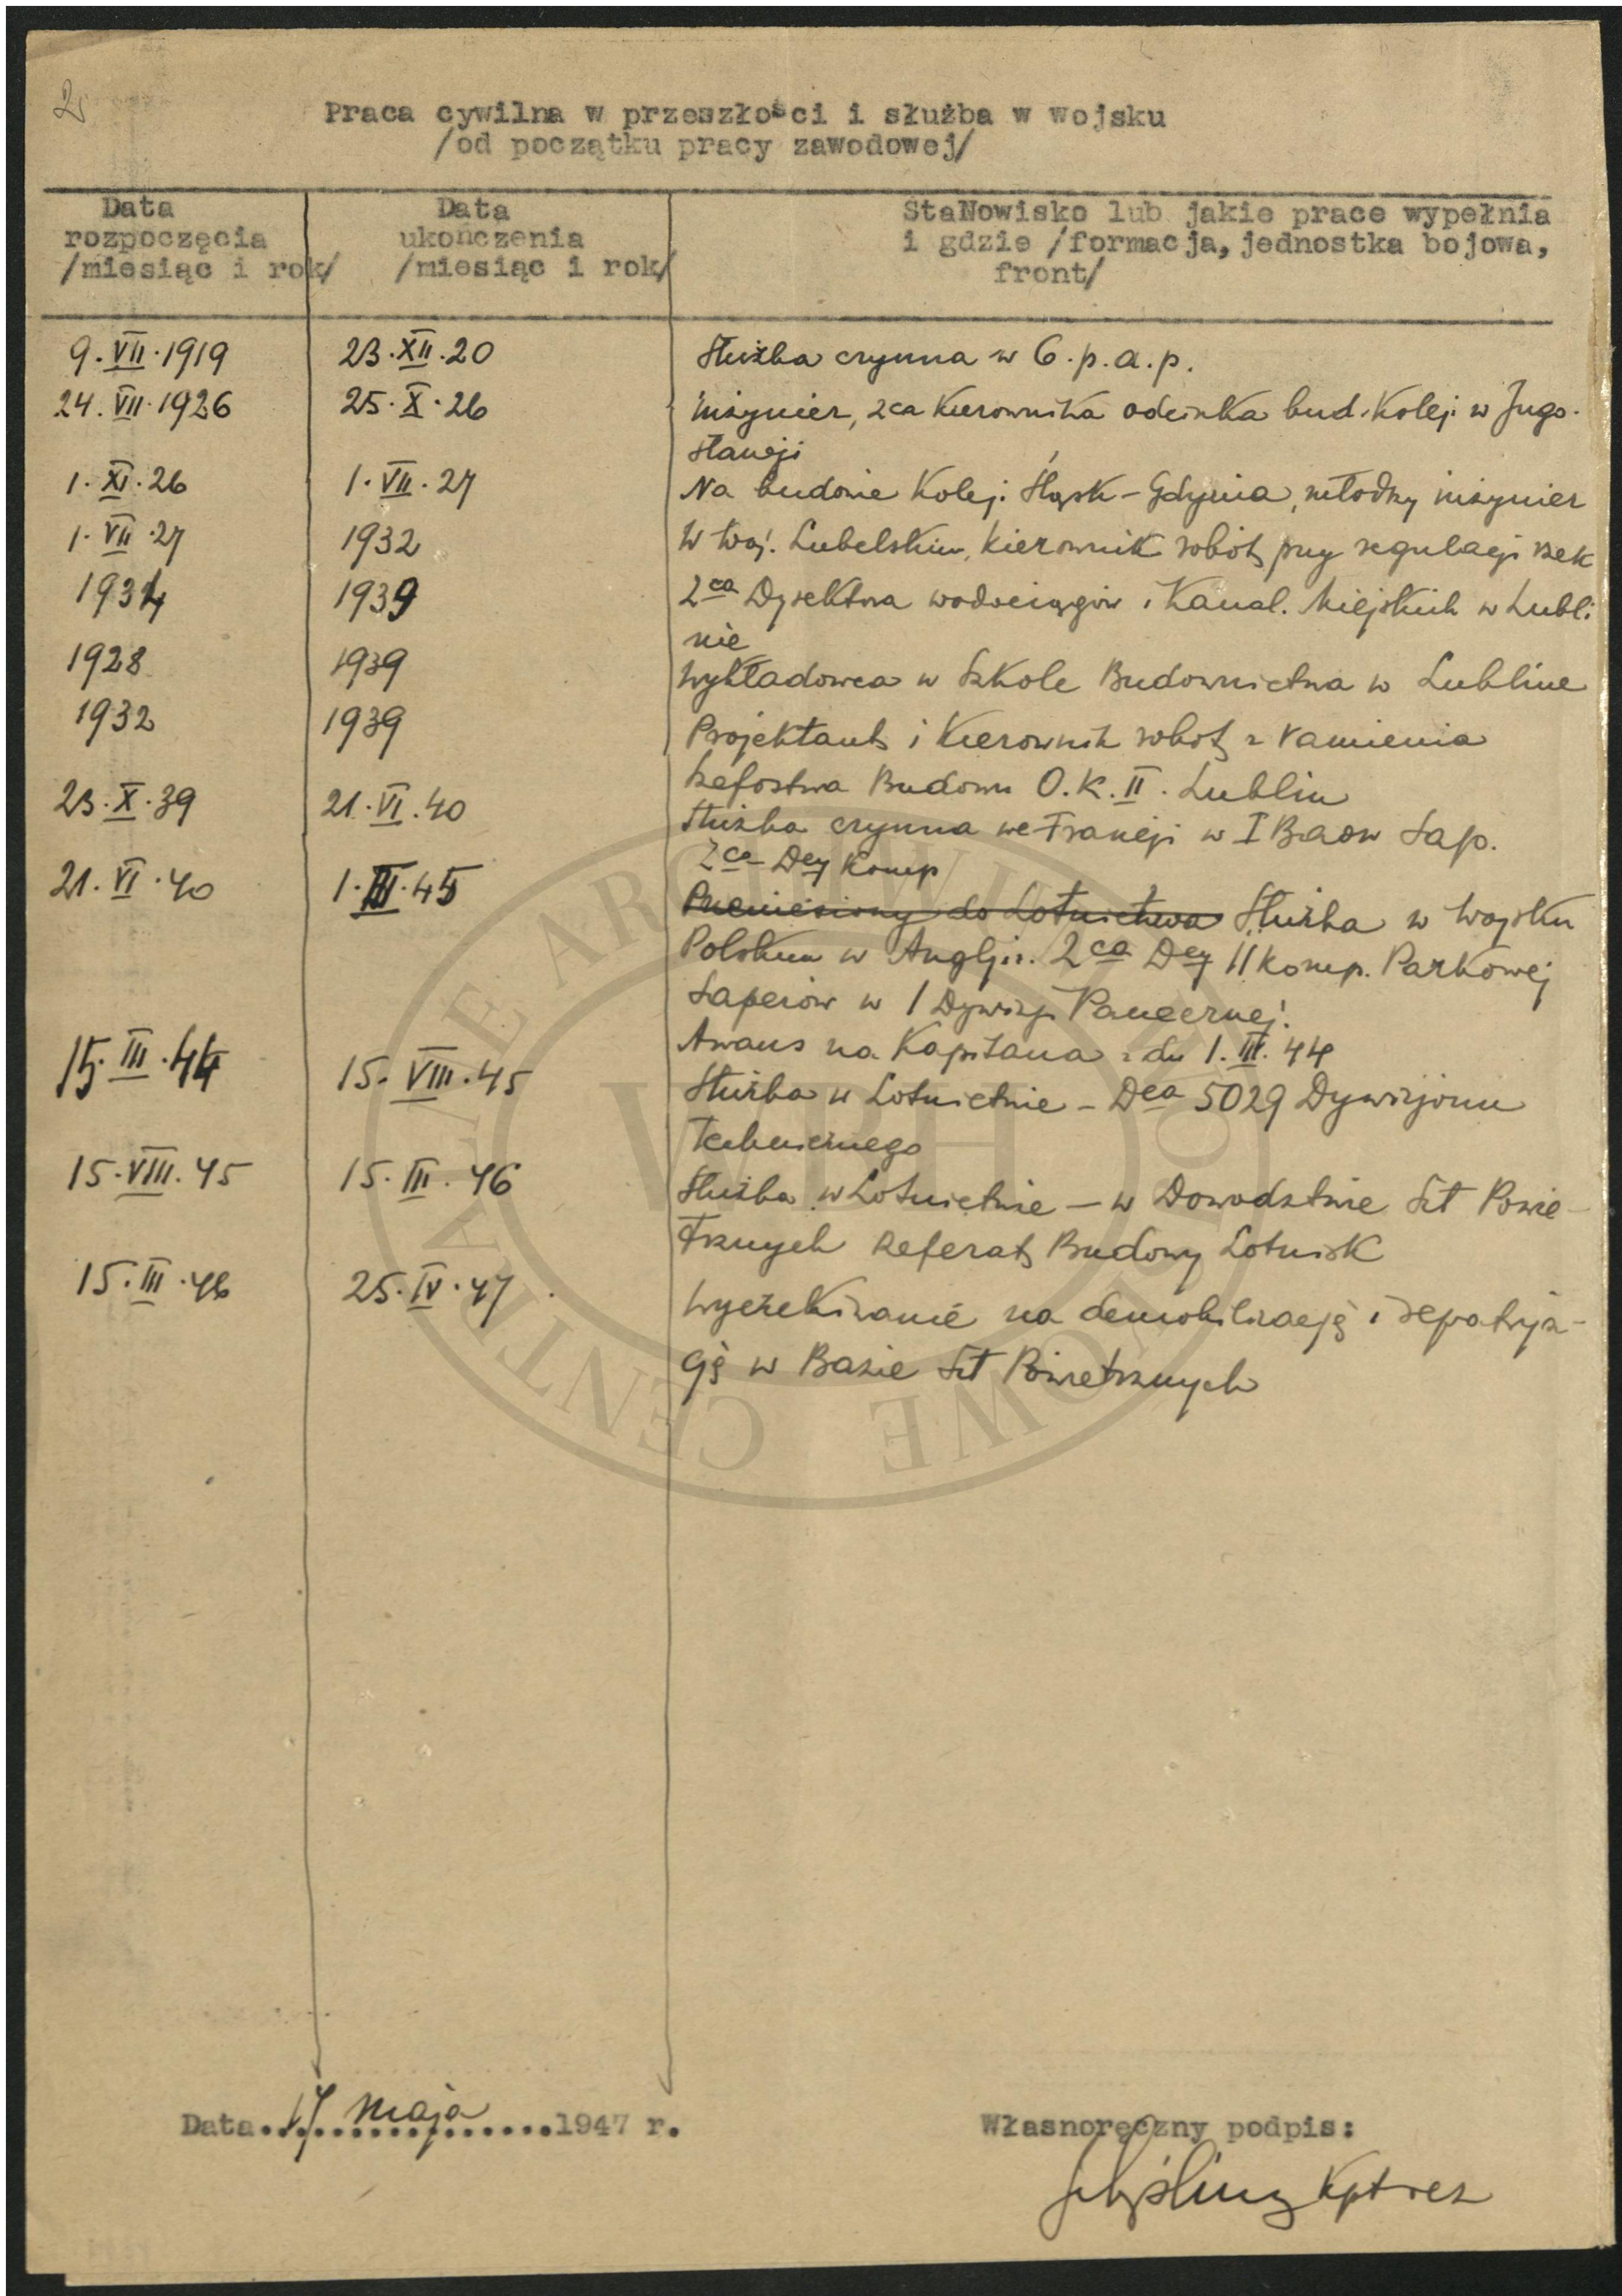 2
Praca cywilna w przeszłości i służba w wojsku
/od początku pracy zawodowej/
Data rozpoczęcia /miesiąc i rok/
Data ukończenia /miesiąc i rok/
StaNowisko lub jakie prace wypełnia
i gdzie /formacja, jednostka bojowa,
front/
9. VII. 1919 23. XII. 20 Służba czynna w 6. p. a. p.
24. VII. 1926 25. X. 26 inżynier, zca Kierownika odcinka bud. Kolei w Jugo-
sławji
1. XI. 26 1. VII. 27 Na budowie Kolej. Śląsk - Gdynia, młodszy inżynier
1. VII. 27 1932 W Woj. Lubelskim, Kierownik robót przy regulacji rzek
1934 1939 Zca Dyrektora wodociągów i Kanal. Miejskich w Lubli-
nie
1928 1939 Wykładowca w Szkole Budownictwa w Lublinie
1932 1939 Projektant i Kierownik robót z ramienia
Szefostwa Budown O. K. II. Lublin
23. X. 39 21. VI. 40 Służba czynna we Francji w I Baon Sap.
Zca Dcy Komp
21. VI. 40 1. III. 45 Przeniesiony do Lotnictwa Służba w Wojsku
Polskim w Anglji. Zca Dcy 11 Komp. Parkowej
Saperów w 1 Dywizji Pancernej.
Awans na Kapitana z dn 1. III. 44
15. III. 44 15. VIII. 45 Służba w Lotnictwie - Dca 5029 Dywizjonu
Technicznego
15. VIII. 45 15. III. 46 Służba w Lotnictwie - w Dowództwie Sił Powie-
trznych Referat Budowy Lotnisk
15. III. 46 25. IV. 47. Wyczekiwanie na demobilizację i repatrja-
cję w Bazie Sił Powietrznych
Data 17 maja 1947 r.
Własnoręczny podpis:
Kpt rez
CENTRALNE ARCHIWUM WOJSKOWE
WBH